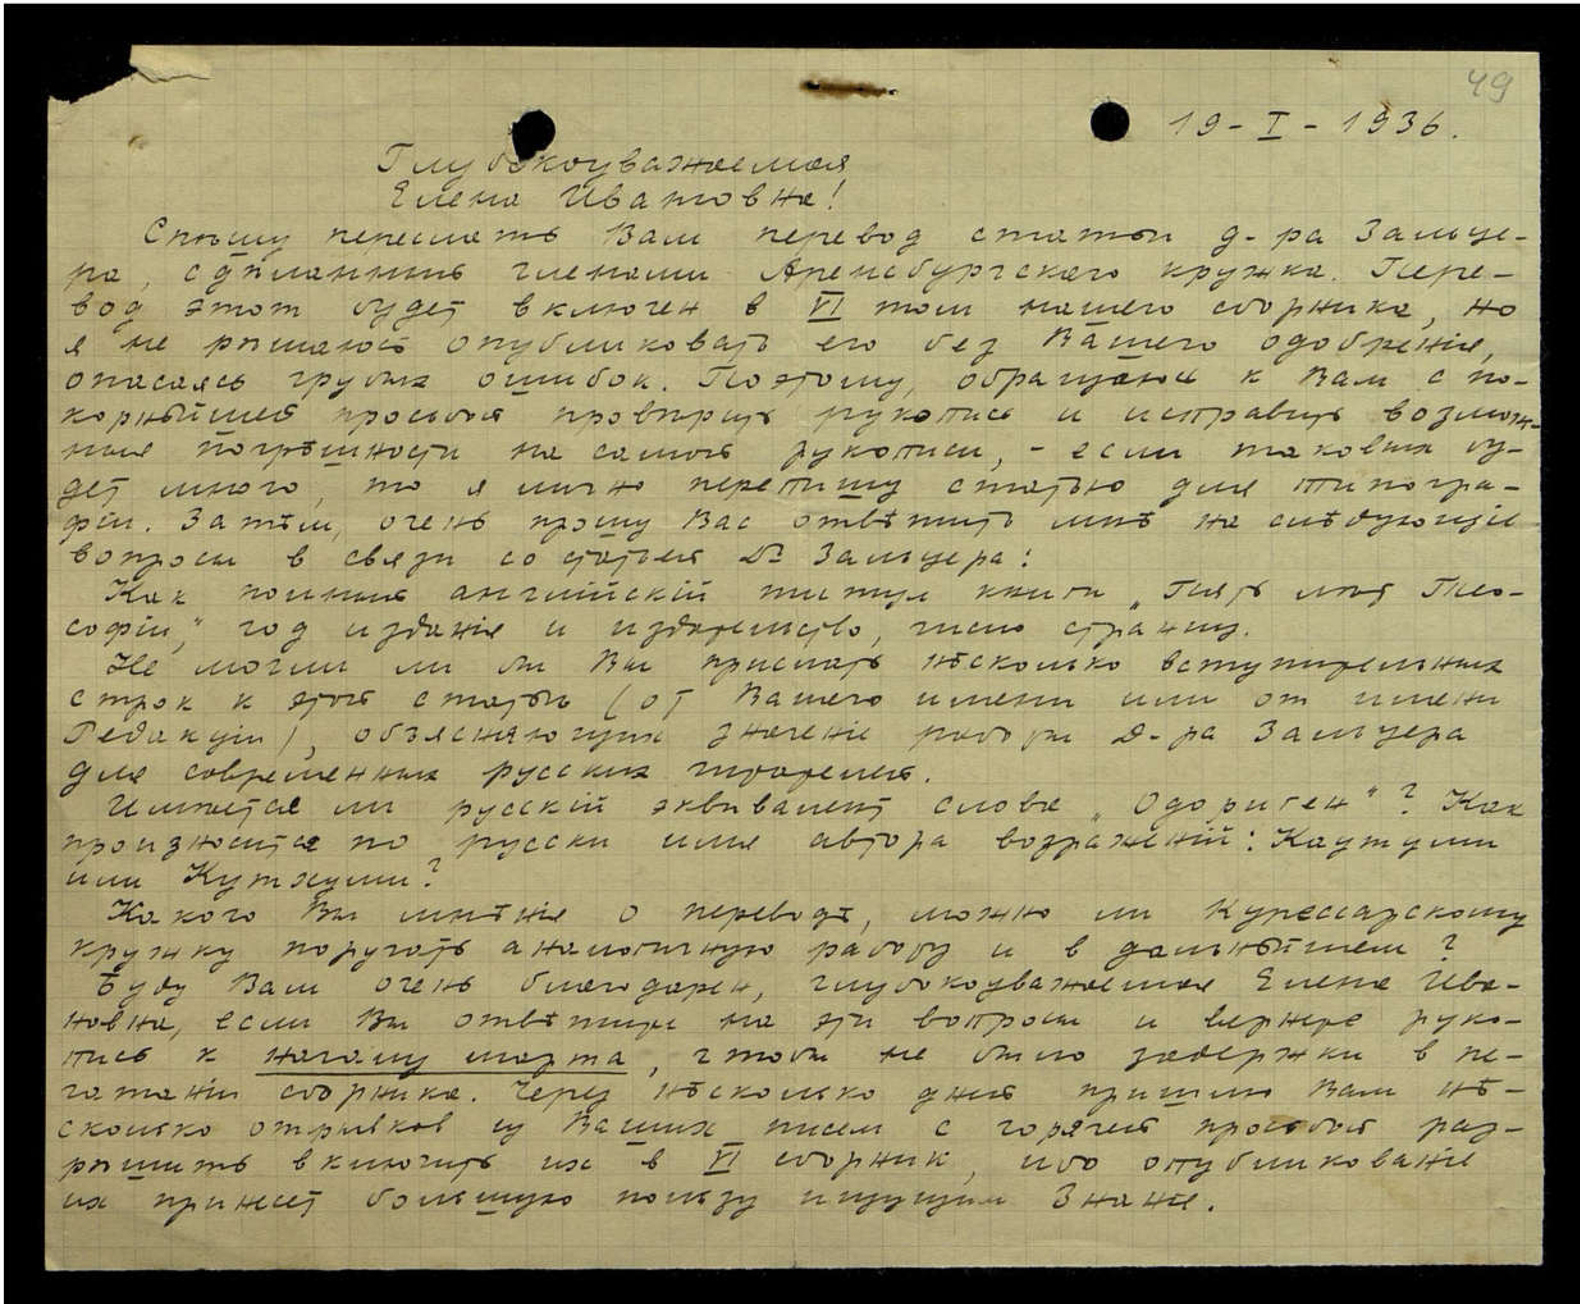 49
19 - I - 1936.
Глубокоуважаемая
Елена Ивановна!
Спѣшу переслать Вам перевод статьи д-ра Зальце-
ра, сдѣланный членами Аренсбургскаго кружка. Пере-
вод этот будет включен в VI том нашего сборника, но
я не рѣшаюсь опубликовать его без Вашего одобренія,
опасаясь грубых ошибок. Поэтому, обращаюсь к Вам с по-
корнѣйшей просьбой провѣрить рукопись и исправить возмож-
ныя погрѣшности на самой рукописи, - если таковых бу-
дет много, то я лично перепишу статью для типогра-
фіи. Затѣм, очень прошу Вас отвѣтить мнѣ на слѣдующіе
вопросы в связи со статьей Др. Зальцера:
Как полный англійскій титул книги „Пять лет Тео-
софіи," год изданія и издательство, число страниц.
Не могли ли бы Вы прислать нѣсколько вступительных
строк к этой статьѣ (от Вашего имени или от имени
Редакціи), объясняющих значеніе работы Д-ра Зальцера
для современных русских читателей.
Имѣется ли русскій эквивалент слова „Одориген"? Как
произносится по русски имя автора возраженій: Каутуми
или Кутхуми?
Какого Вы мнѣнія о переводѣ, можно ли Курессарскому
кружку поручать аналогичную работу и в дальнѣйшем?
Буду Вам очень благодарен, глубокоуважаемая Елена Ива-
новна, если Вы отвѣтите на эти вопросы и вернете руко-
пись к началу марта, чтобы не было задержки в пе-
чатаніи сборника. Через нѣсколько дней пришлю Вам нѣ-
сколько отрывков из Ваших писем с горячей просьбой раз-
рѣшить включить их в VI сборник, ибо опубликованіе
их принесет большую пользу ищущим Знанія.